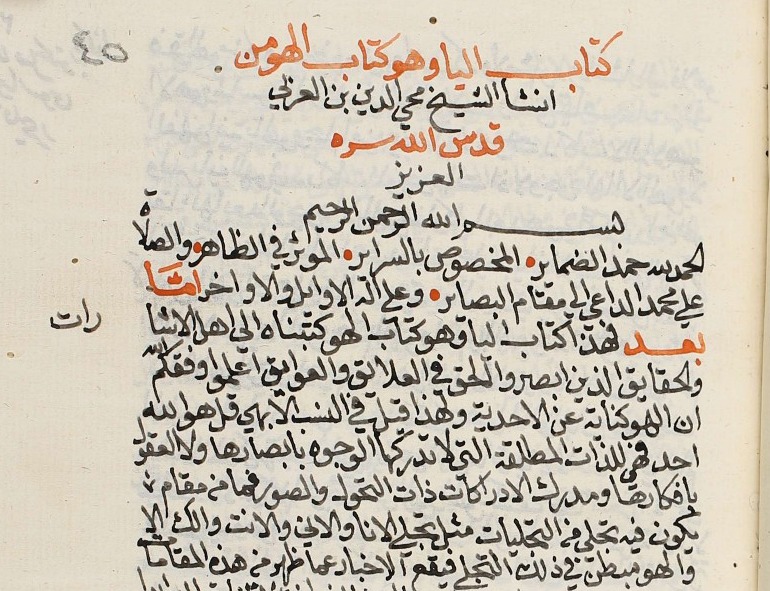 كتاب اليا وهو كتاب الهو من
انشا الشيخ محي الدين بن العربي
قدس الله سره
العزيز
بسم الله الرحمن الرحيم
الحمد لله حمد الضماير المخصوص بالسراير الموثر في الظاهر والصلاة
علي محمد الداعي الي مقام البصاير وعلي اله الاوايل والاواخر امّا
بعد فهذا كتاب اليا وهو كتاب الهو كتبناه الي اهل الاشا
رات
والحقايق الذين ابصروا الحق في العلايق والعوايق اعلموا وفقكم الله
ان الهو كناية عن الاحدية ولهذا قيل في النسب الالهي قل هو الله
احد فهي للذات المطلقة التي لا تدركها الوجوه بابصارها ولا العقول
بافكارها ومدرك الادراكات ذات التحول والصور فما من مقام
يكون فيه تجلي من التجليات مثل تجلي الانا والاني والانت والك الا
والهو مبطن في ذلك التجلي فيقع الاخبار عما ظهر من هذه المقامات